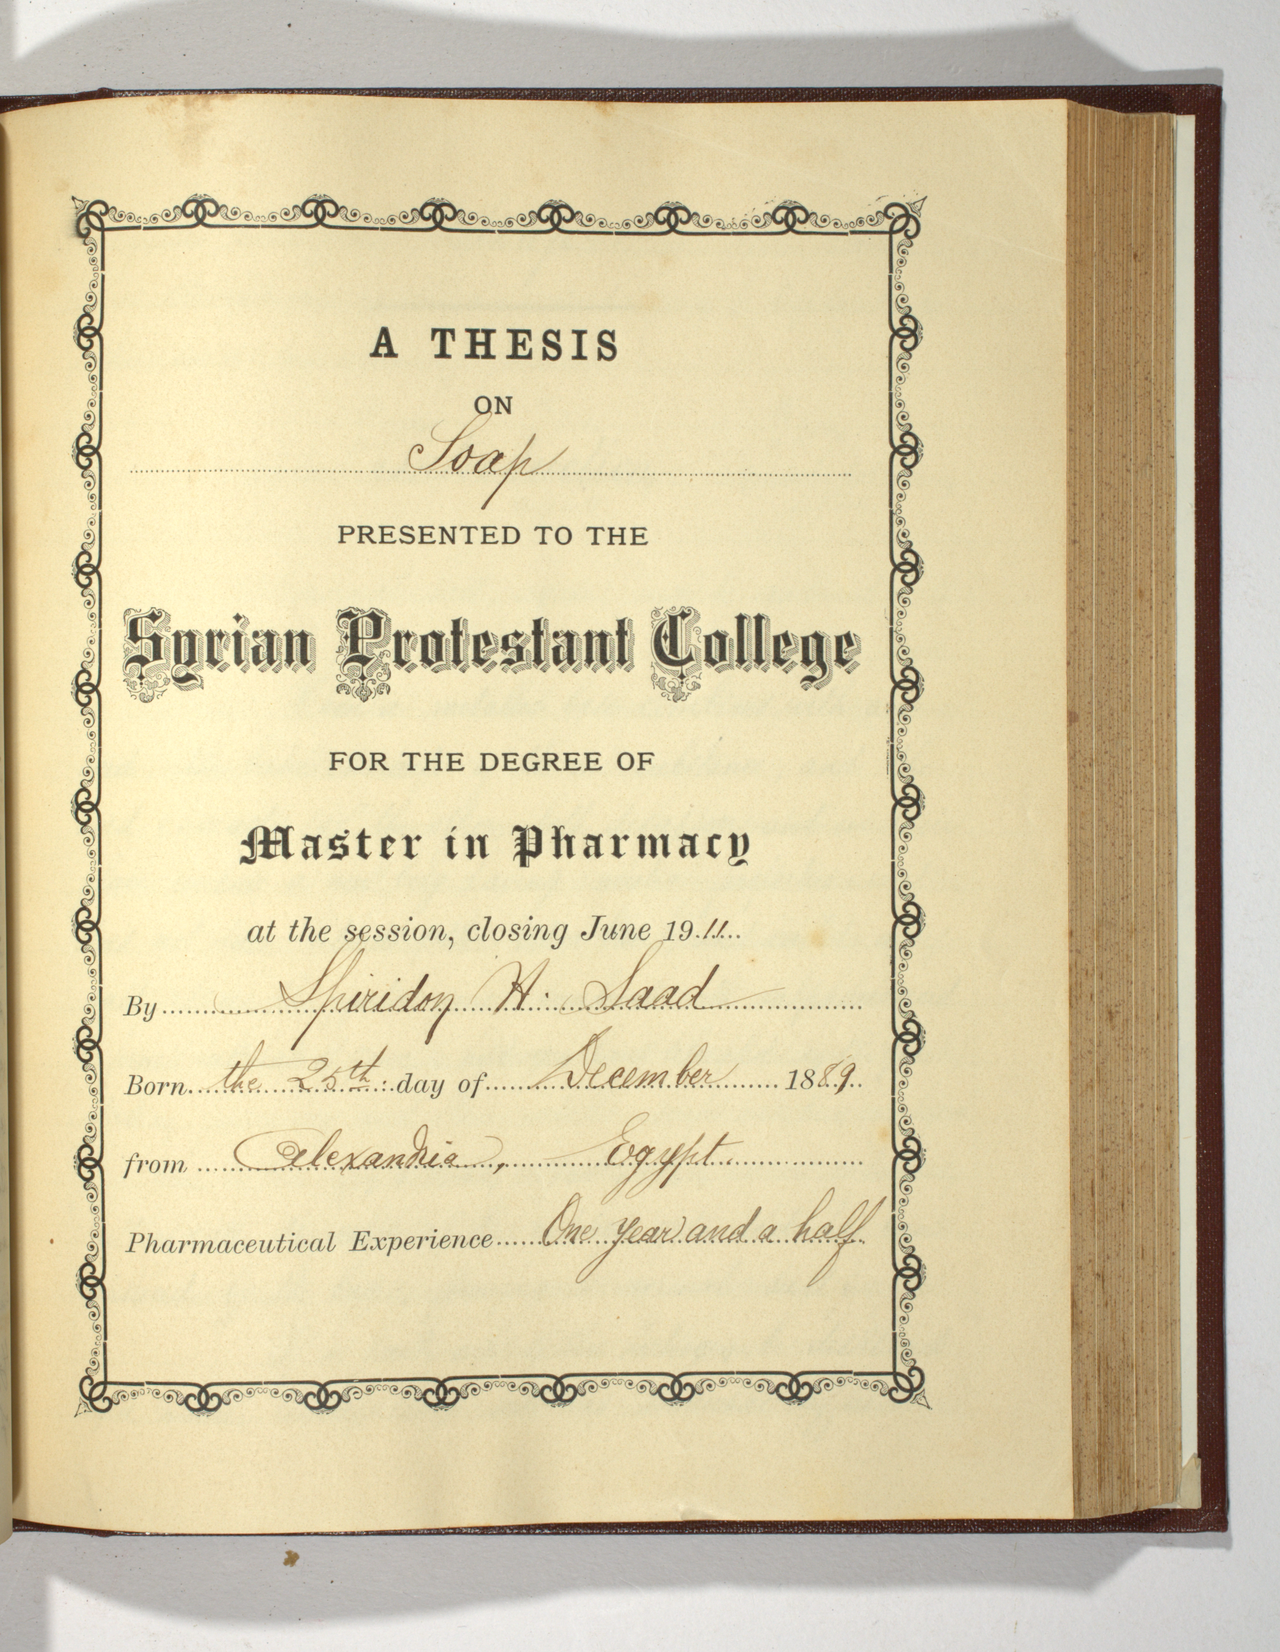 A THESIS
ON
Soap
PRESENTED TO THE
Syrian Protestant College
FOR THE DEGREE OF
Master in Pharmacy
at the session, closing June 1911
By Spiridon H. Saad
Born the 25th day of December 1889
from Alexandria, Egypt.
Pharmaceutical Experience One year and a half